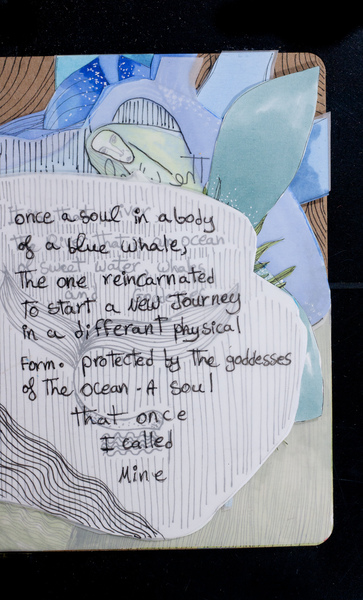 once a soul in a body
of a blue whale,
The one reincarnated
To start a new Journey
in a differant physical
Form. protected by The goddesses
of The ocean - A soul
that once
I called
Mine